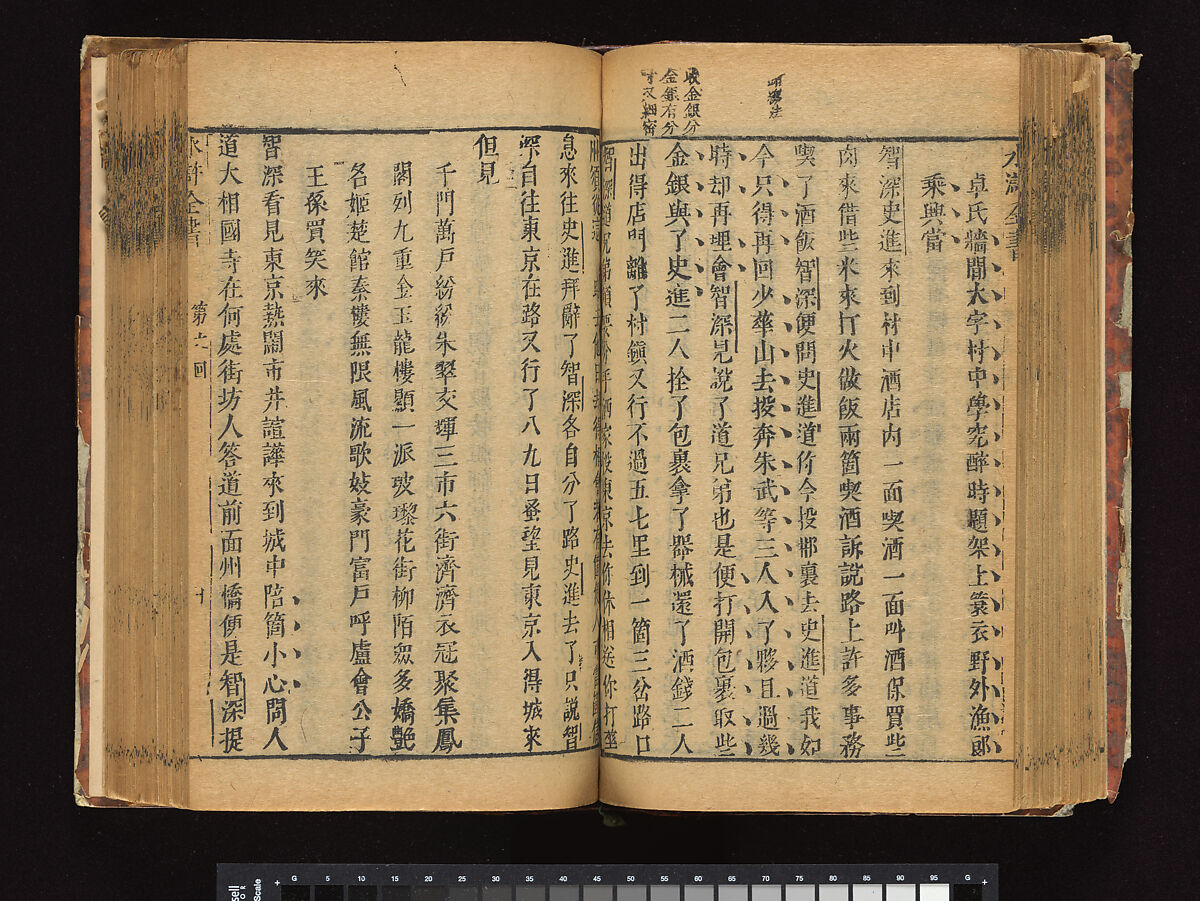 水滸全書
收金銀分
金銀有分
卓氏牆間大字村中學究醉時題架上簑衣野外漁郎
乘興當
智深史進來到村中酒店内一面喫酒一面叫酒保買些
肉來借些米來打火做飯兩箇喫酒訴說路上許多事務
喫了酒飯智深便問史進道你今投那裏去史進道我如
今只得再回少華山去投奔朱武等三人入了夥且過幾
時却再理會智深見說了道兄弟也是便打開包裹取些
金銀與了史進二人拴了包裹拿了器械還了酒錢二人
出得店門離了村鎮又行不過五七里到一箇三岔路口
息來往史進拜辭了智深各自分了路史進去了只說智
深自往東京在路又行了八九日蚤望見東京入得城來
但見
千門萬戶紛紛朱翠交輝三市六街濟濟衣冠聚集鳳
閣列九重金玉龍樓顯一派玻瓈花街柳陌眾多嬌艷
名姬楚館秦樓無限風流歌妓豪門富戶呼盧會公子
王孫買笑來
智深看見東京熱鬧市井諠譁來到城中陪箇小心問人
道大相國寺在何處街坊人答道前面州橋便是智深提
水滸全書
回
十
G 5 10 15 20 30 40 50 60 70 75 80 85 90 95 G
Scale